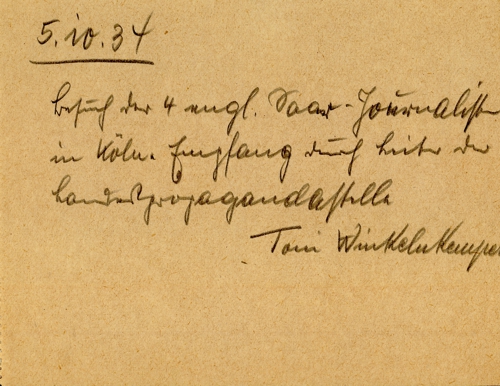 5.10.34
Besuch der 4 engl. Saar-Journalisten
in Köln. Empfang durch Leiter der
Landespropagandastelle
Toni Winkelnkemper